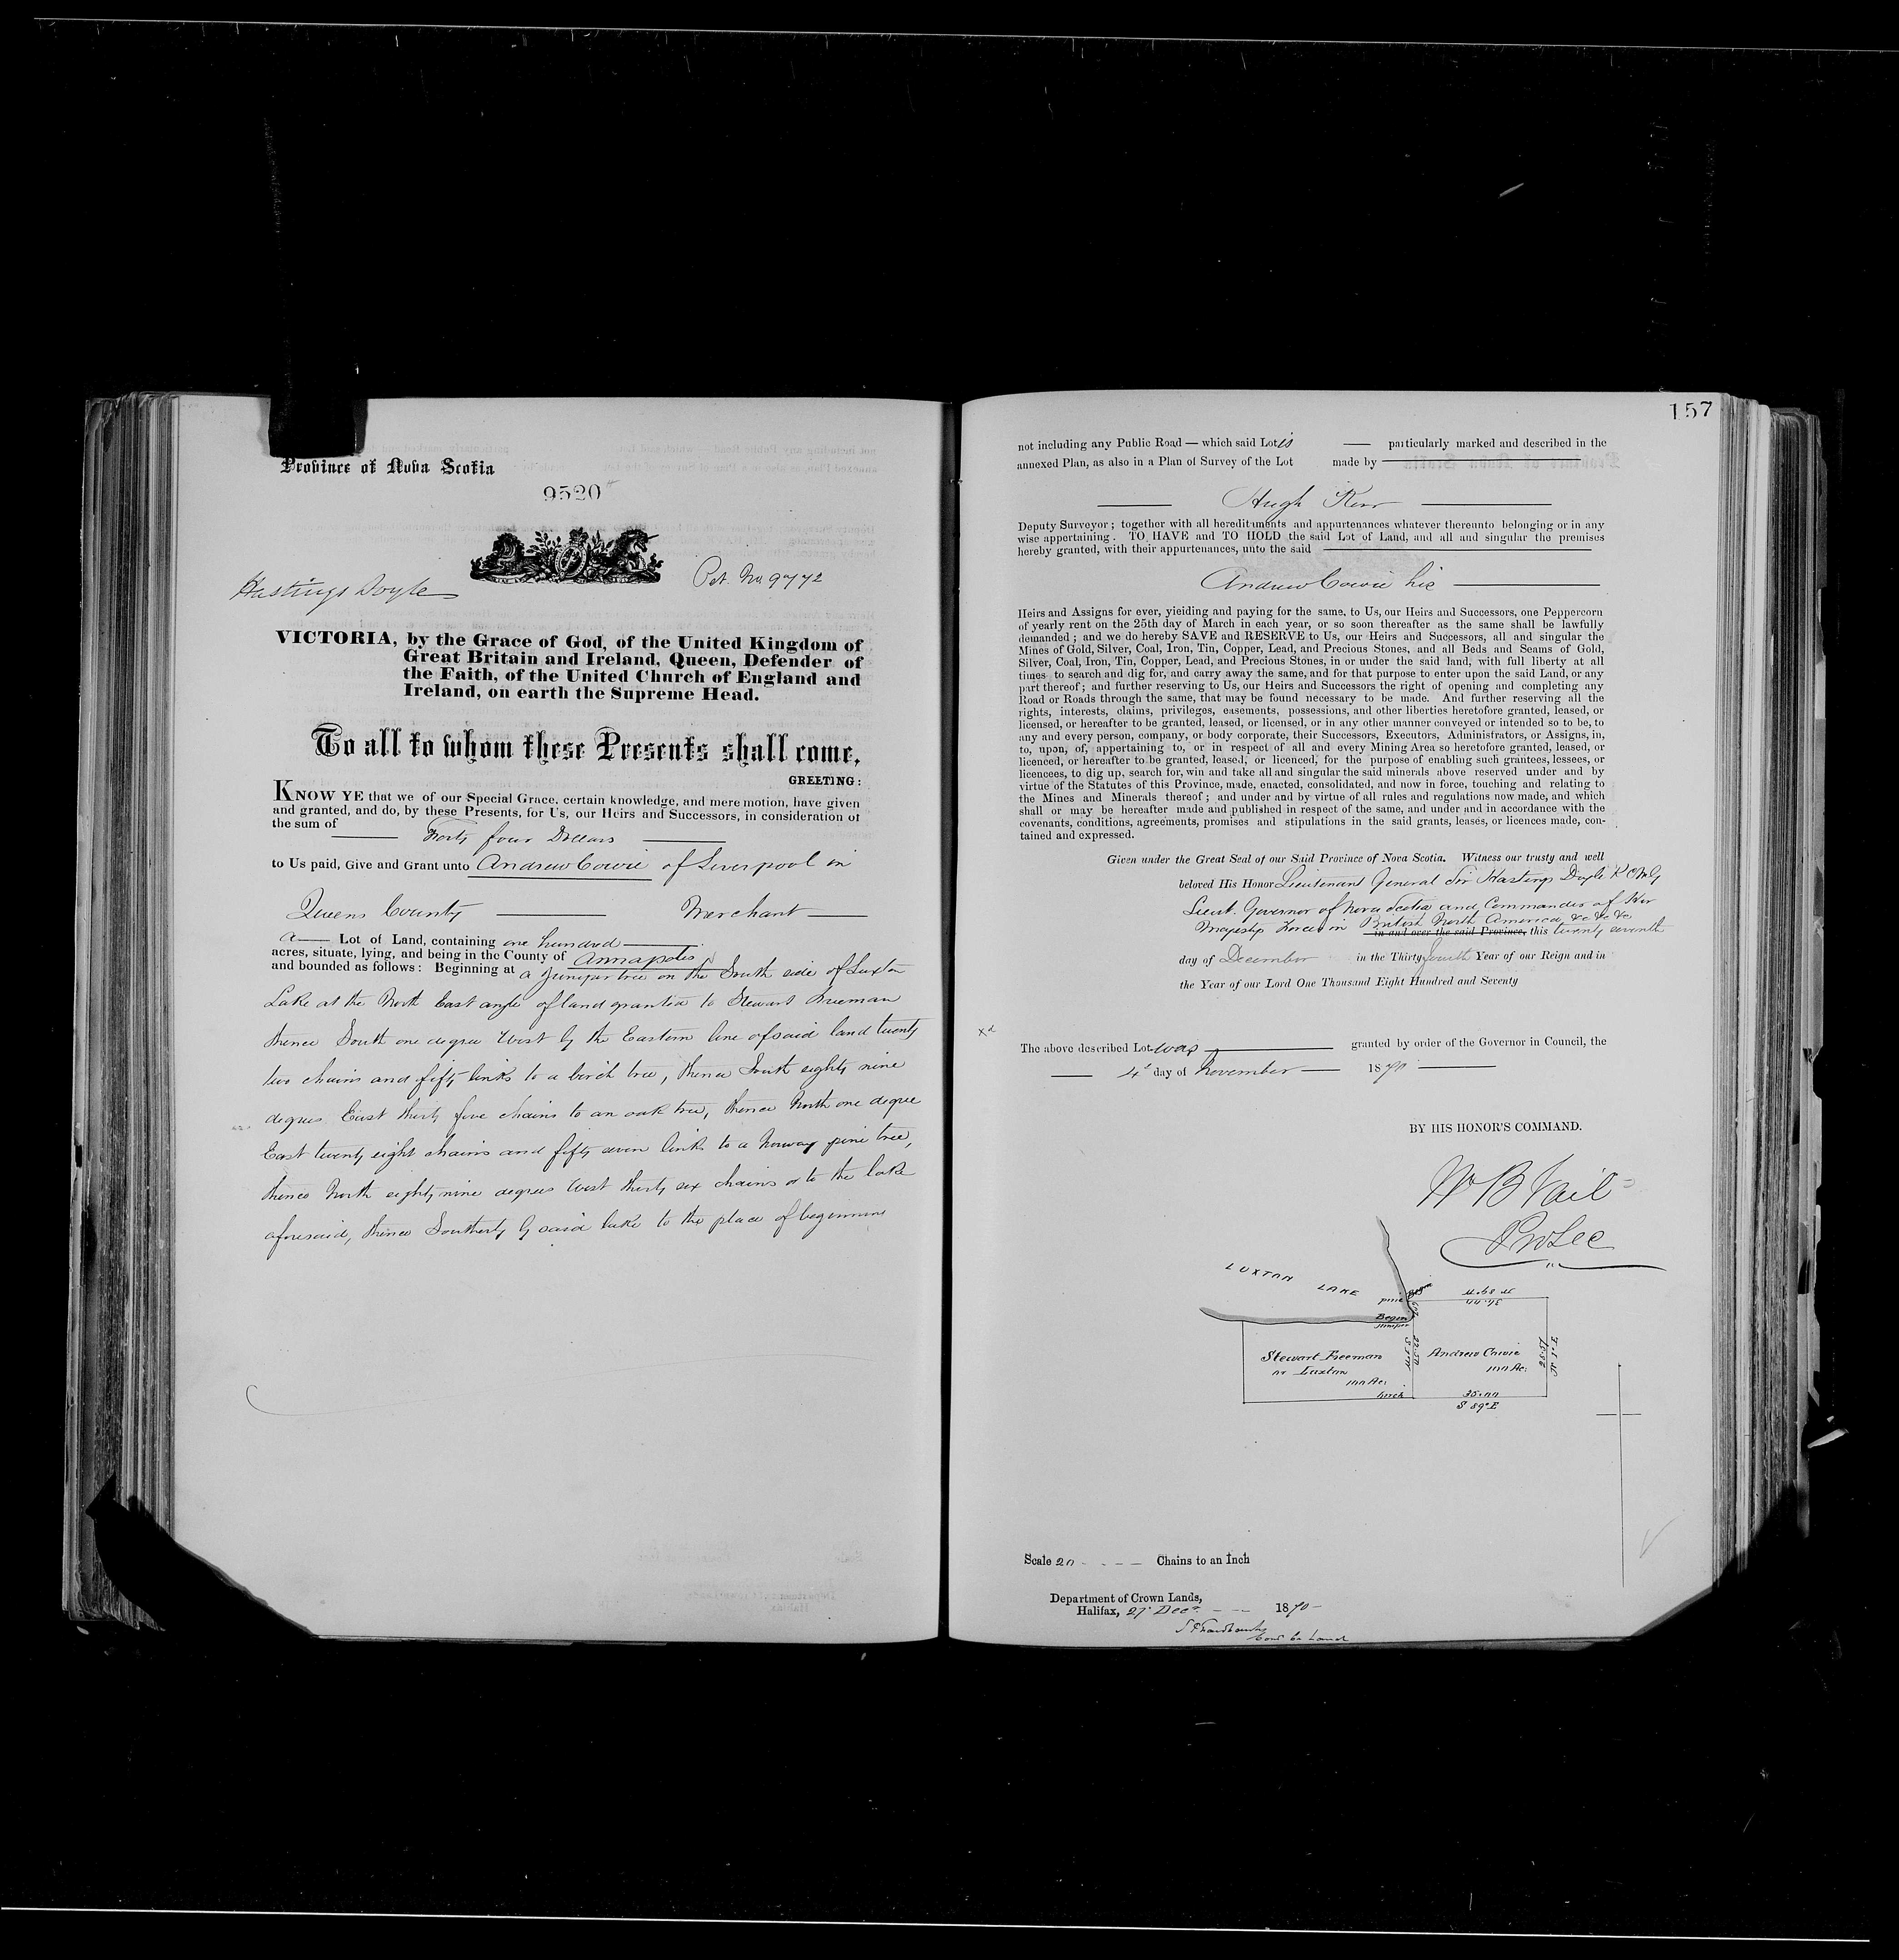 Province of Nova Scotia
9520
Hastings Doyle
Pet. No 9772
VICTORIA, by the Grace of God, of the United Kingdom of
Great Britain and Ireland, Queen, Defender of
the Faith, of the United Church of England and
Ireland, on earth the Supreme Head.
To all to whom these Presents shall come,
GREETING:
KNOW YE that we of our Special Grace, certain knowledge, and mere motion, have given
and granted, and do, by these Presents, for Us, our Heirs and Successors, in consideration of
the sum of Forty four Dollars
to Us paid, Give and Grant unto Andrew Cowie of Liverpool in
Queens County Merchant
a Lot of Land, containing one hundred
acres, situate, lying, and being in the County of Annapolis
and bounded as follows: Beginning at a Juniper tree on the South side of Luxton
Lake at the North East angle of land granted to Stewart Freeman
thence South one degree West by the Eastern line of said land twenty
two chains and fifty links to a birch tree, thence South eighty nine
degrees East thirty five chains to an oak tree, thence North one degree
East twenty eight chains and fifty seven links to a Norway pine tree,
thence North eighty nine degrees West thirty six chains or to the lake
aforesaid, thence Southerly by said lake to the place of beginning
157
not including any Public Road — which said Lot is particularly marked and described in the
annexed Plan, as also in a Plan of Survey of the Lot made by
Hugh Kerr
Deputy Surveyor; together with all hereditaments and appurtenances whatever thereunto belonging or in any
wise appertaining. TO HAVE and TO HOLD the said Lot of Land, and all and singular the premises
hereby granted, with their appurtenances, unto the said
Andrew Cowie his
Heirs and Assigns for ever, yieiding and paying for the same, to Us, our Heirs and Successors, one Peppercorn
of yearly rent on the 25th day of March in each year, or so soon thereafter as the same shall be lawfully
demanded; and we do hereby SAVE and RESERVE to Us, our Heirs and Successors, all and singular the
Mines of Gold, Silver, Coal, Iron, Tin, Copper, Lead, and Precious Stones, and all Beds and Seams of Gold,
Silver, Coal, Iron, Tin, Copper, Lead, and Precious Stones, in or under the said land, with full liberty at all
times to search and dig for, and carry away the same, and for that purpose to enter upon the said Land, or any
part thereof; and further reserving to Us, our Heirs and Successors the right of opening and completing any
Road or Roads through the same, that may be found necessary to be made. And further reserving all the
rights, interests, claims, privileges, easements, possessions, and other liberties heretofore granted, leased, or
licensed, or hereafter to be granted, leased, or licensed, or in any other manner conveyed or intended so to be, to
any and every person, company, or body corporate, their Successors, Executors, Administrators, or Assigns, in,
to, upon, of, appertaining to, or in respect of all and every Mining Area so heretofore granted, leased, or
licenced, or hereafter to be granted, leased, or licenced, for the purpose of enabling such grantees, lessees, or
licencees, to dig up, search for, win and take all and singular the said minerals above reserved under and by
virtue of the Statutes of this Province, made, enacted, consolidated, and now in force, touching and relating to
the Mines and Minerals thereof; and under and by virtue of all rules and regulations now made, and which
shall or may be hereafter made and published in respect of the same, and under and in accordance with the
covenants, conditions, agreements, promises and stipulations in the said grants, leases, or licences made, con-
tained and expressed.
Given under the Great Seal of our Said Province of Nova Scotia. Witness our trusty and well
beloved His Honor Lieutenant General Sir Hastings Doyle K C M G
Lieut. Governor of Nova Scotia and Commander of Her
Majestys Forces in British North America &c &c &c
in and over the said Province, this twenty seventh
day of December in the Thirty fourth Year of our Reign and in
the Year of our Lord One Thousand Eight Hundred and Seventy
The above described Lot was granted by order of the Governor in Council, the
4th day of November 1870
BY HIS HONOR'S COMMAND.
Wm B Vail
P Sec
LUXTON LAKE
pine
N 89° W
Begin
juniper
S 1° W
22.50
Stewart Freeman
or Luxton
100 Ac:
Andrew Cowie
100 Ac:
N 1° E
28.57
birch
35.00
S 89° E
Scale 20 Chains to an Inch
Department of Crown Lands,
Halifax, 27 Decr. 1870